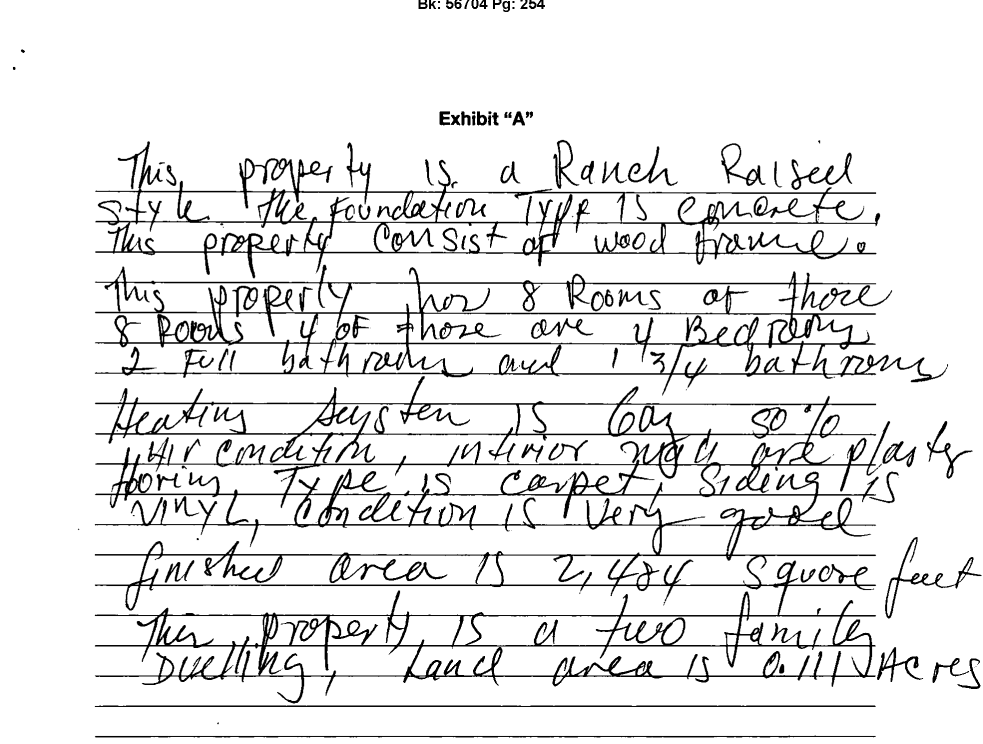 Bk: 56704 Pg: 254
Exhibit “A”
This property is a Ranch Raised
style. The Foundation Type is concrete.
This property consist of wood frame.
This property has 8 Rooms of those
8 Rooms 4 of those are 4 Bedrooms
2 Full bathrooms and 1 3/4 bathrooms
Heating System is Gas, 50%
Air condition, interior are plaster
flooring Type is carpet, Siding is
Vinyl, Condition is Very good
finished area is 2,484 square feet
This property is a two family
Duelling, Land area is 0.111 Acres